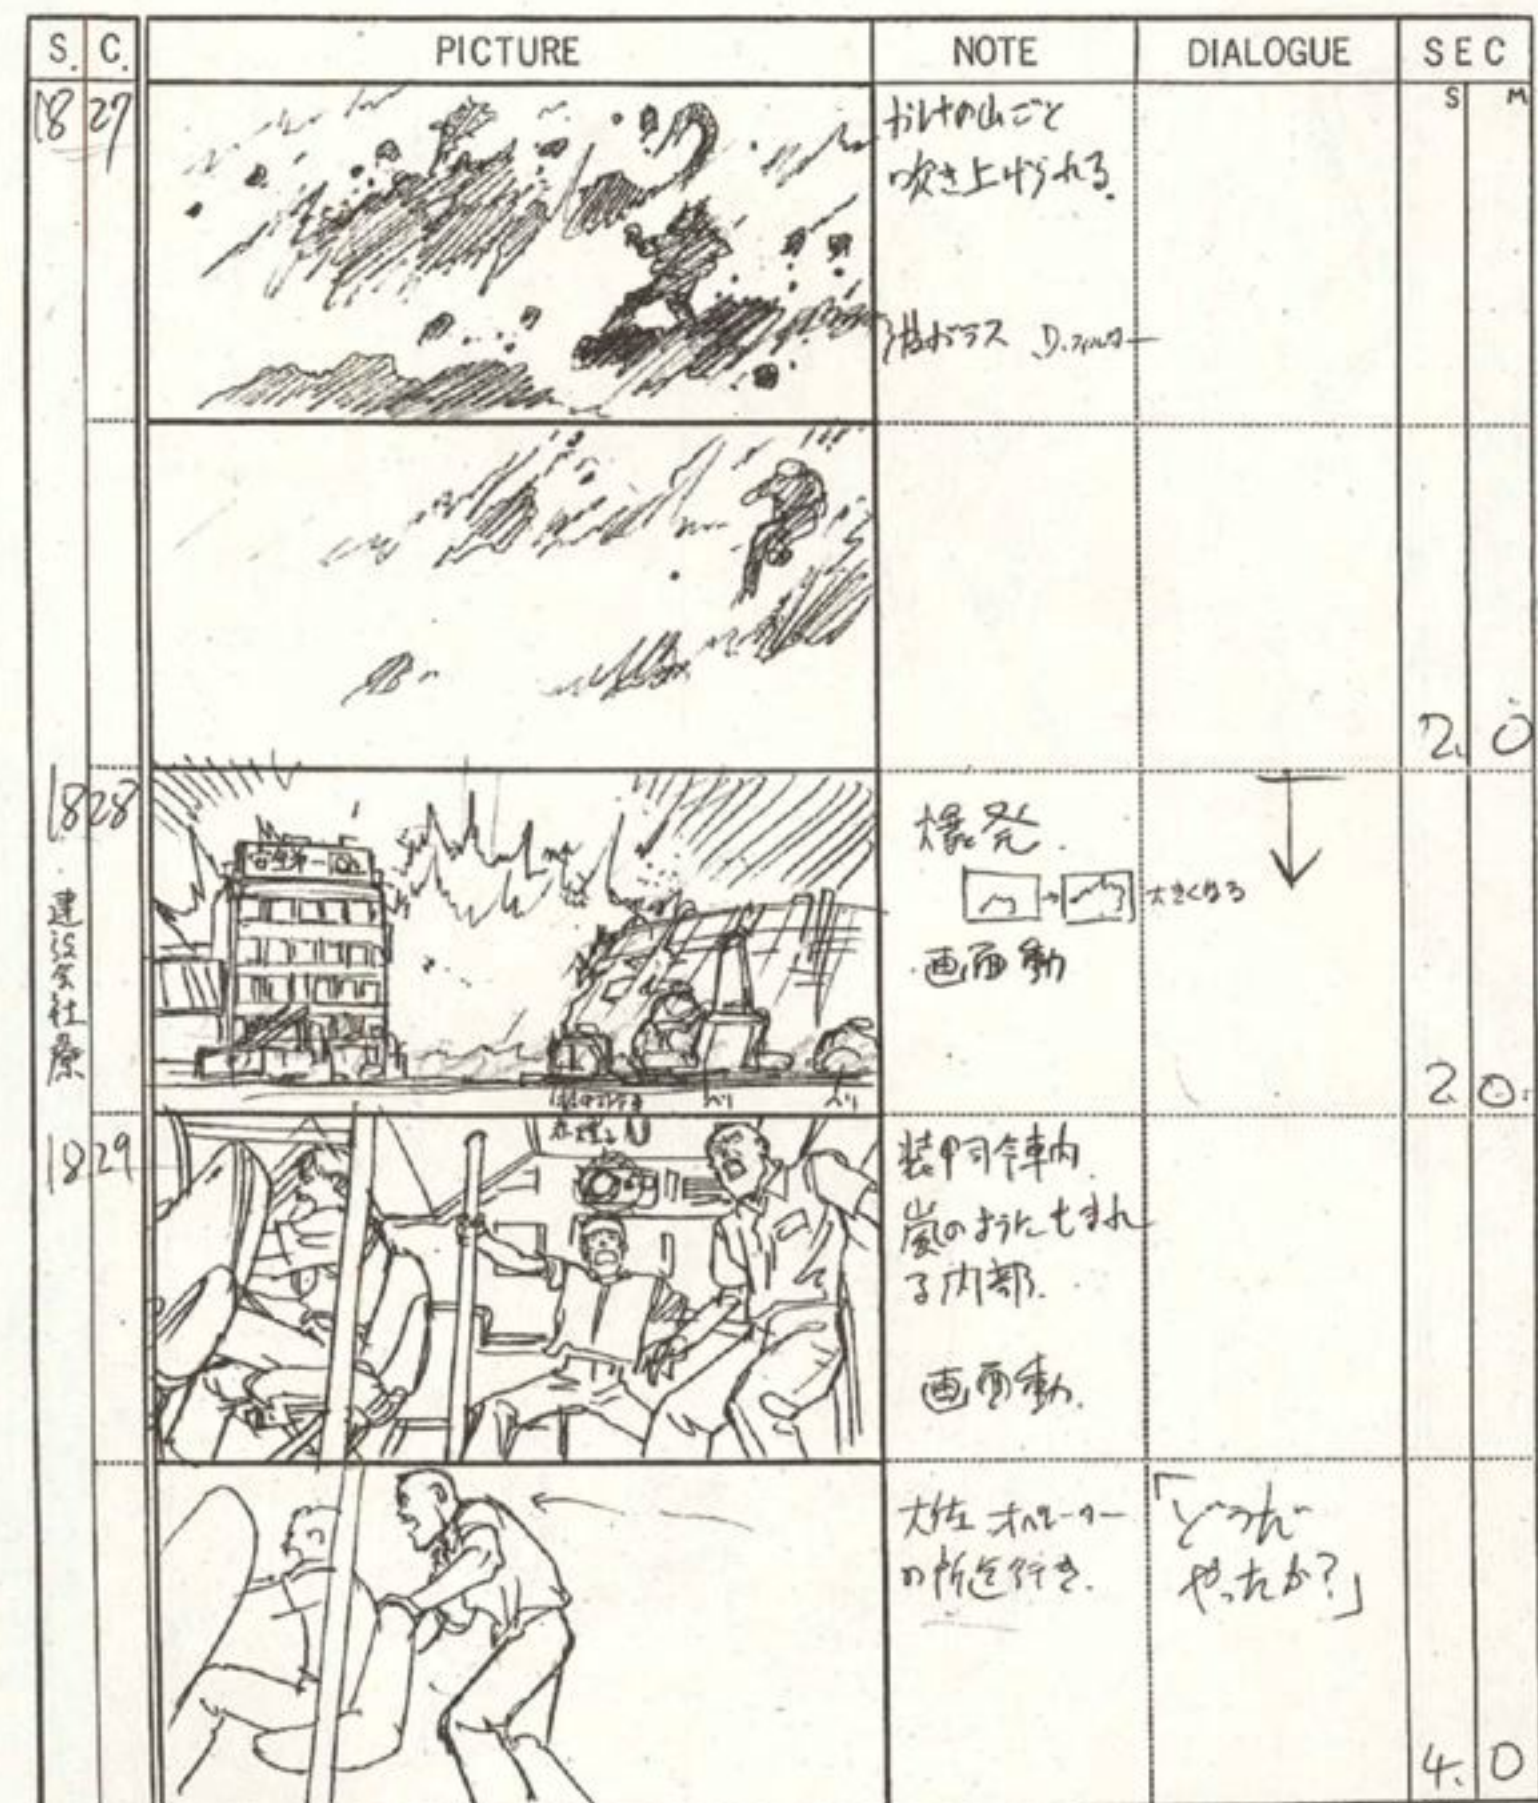 S. C. PICTURE NOTE DIALOGUE SEC
S M
18 27
吹き上げられる。
波ガラス D.フィルター
2. 0
18 28
建設会社寮
爆発.
大きくなる
画面動
2 0.
18 29
装甲司令車内.
嵐のようにもまれ
る内部.
画面動.
大佐 オペレーター
の所迄行き.
「どうだ
やったか?」
4. 0